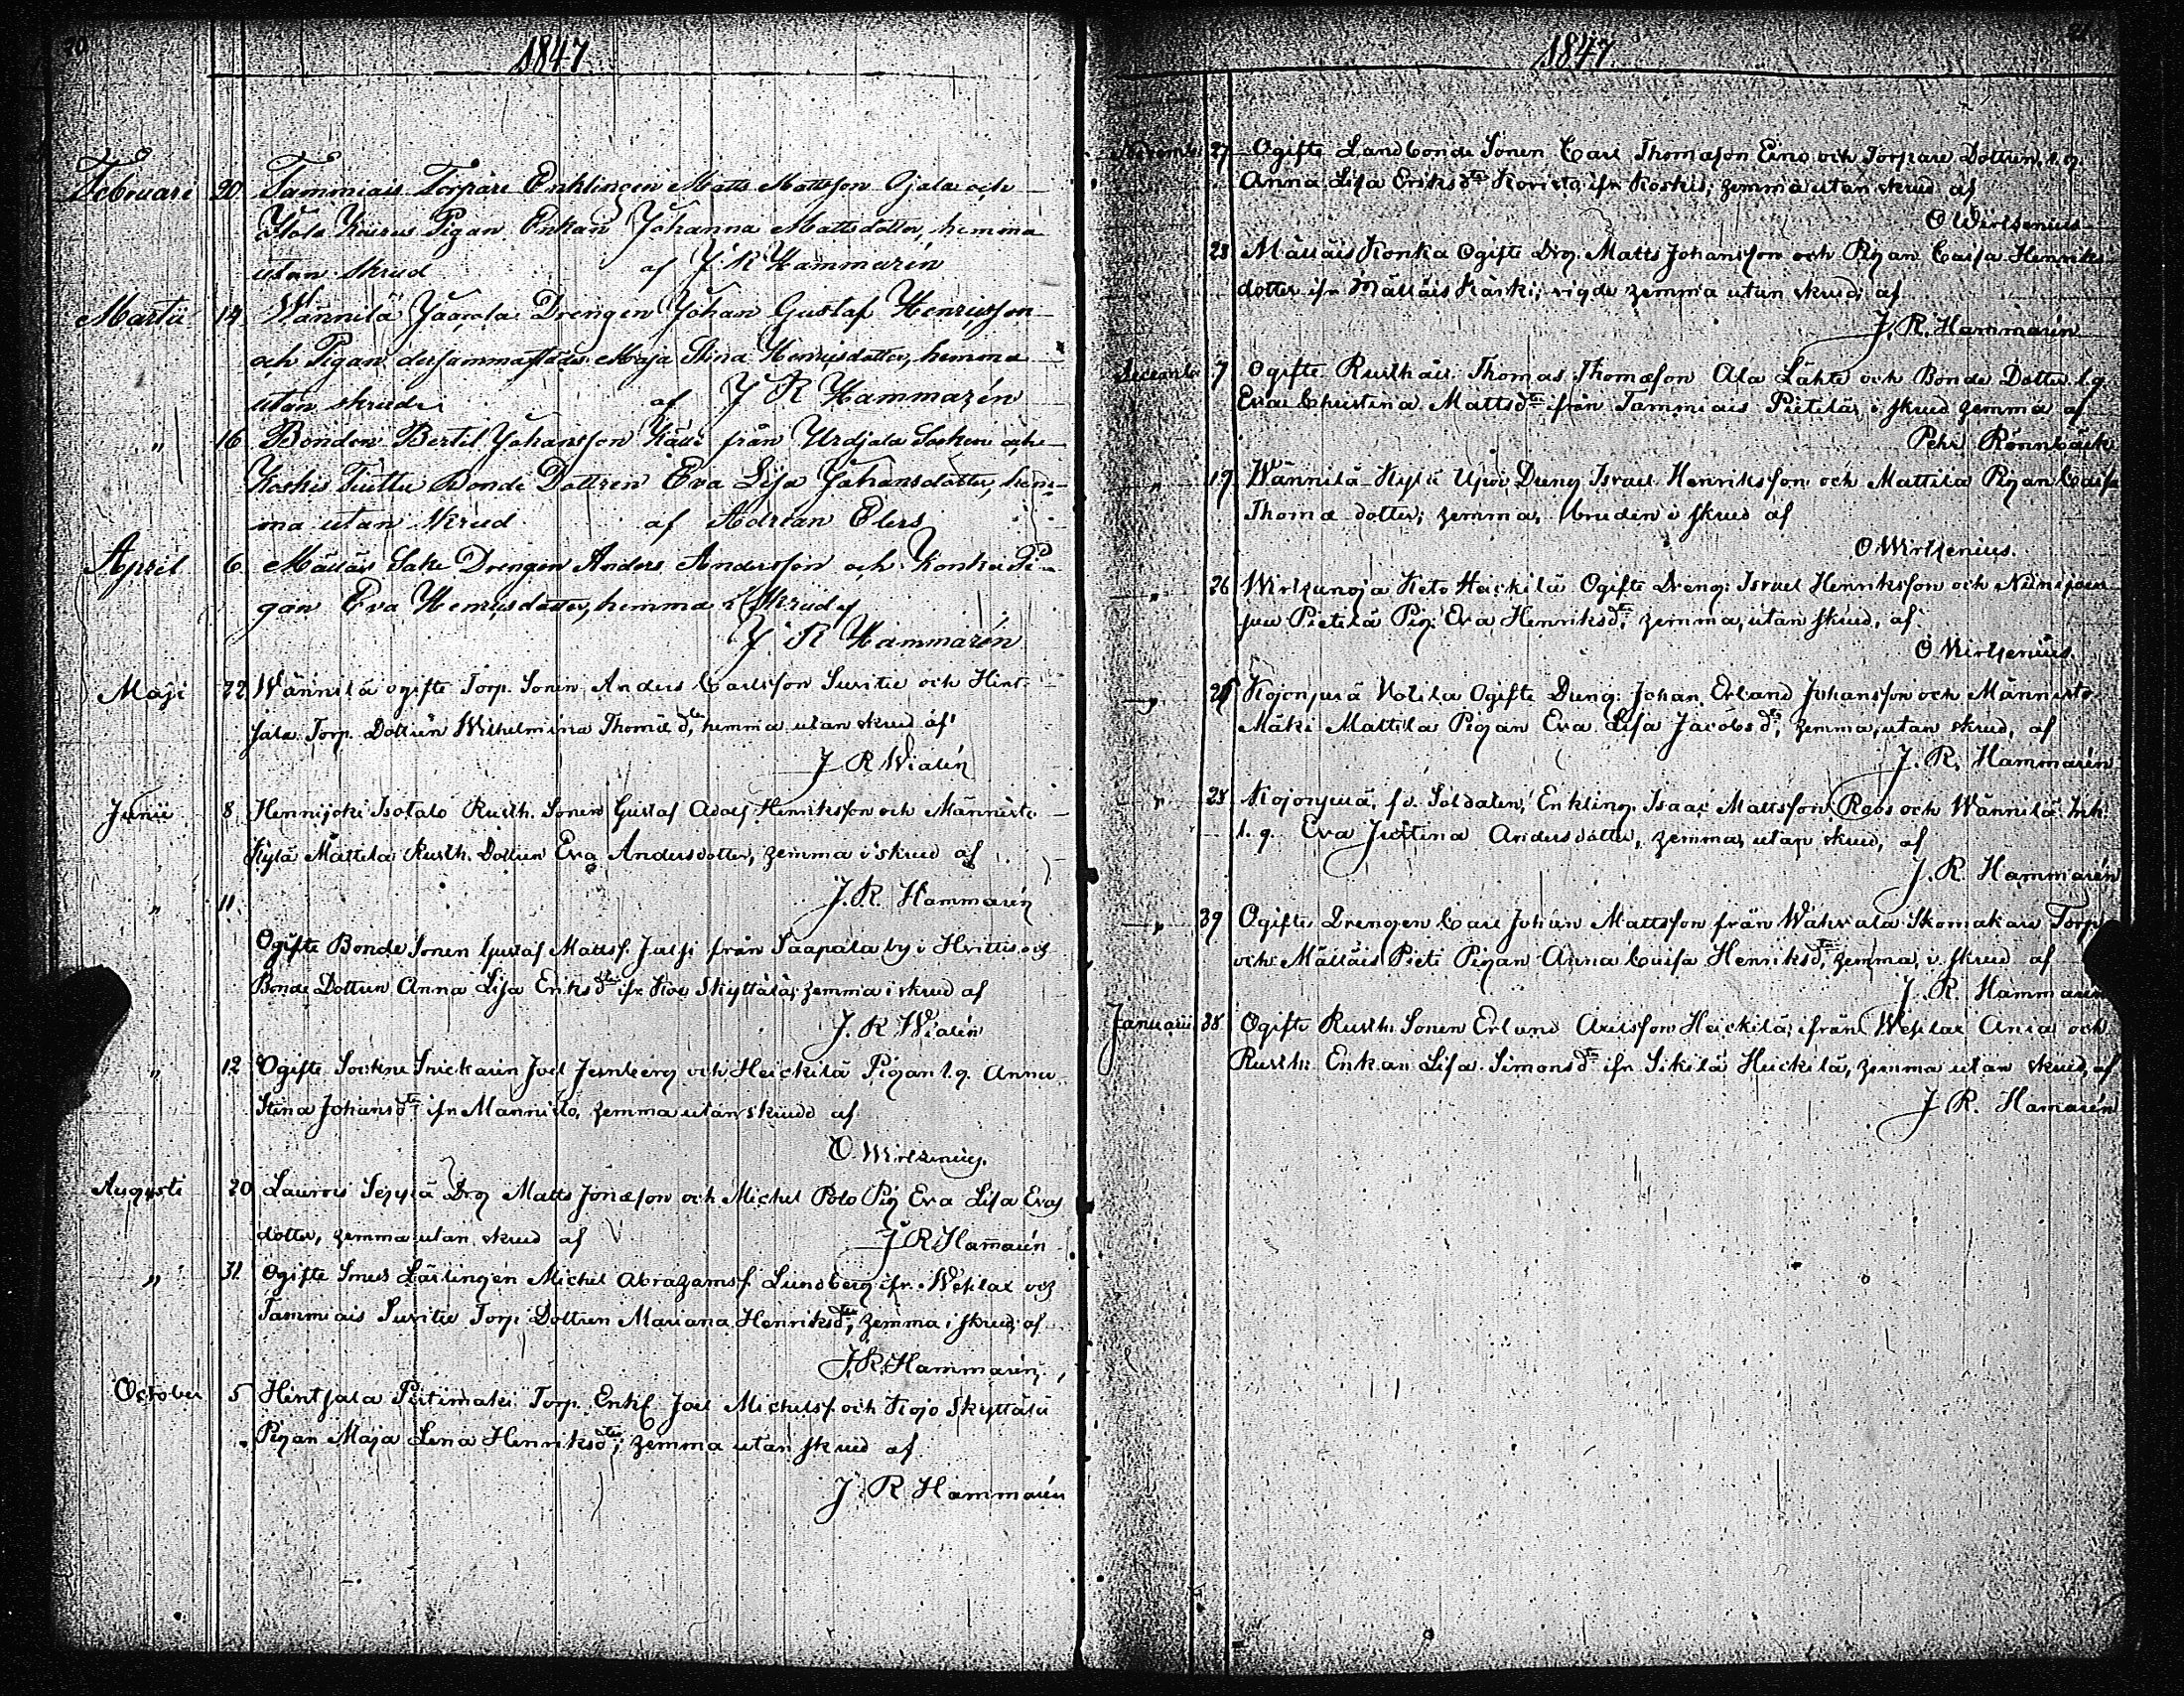 1847
Februari 20 Tammiais Torpare Enklingen Matts Mattsson Ojala och
Pigan Enkan Johanna Mattsdotter, hemma
utan skrud af J R Hammarén
Martii 14 Wännilä Jaarala Drengen Johan Gustaf Henricsson
och Pigan dersammastädes Maja Stina Henricsdotter, hemma
utan skrud af J R Hammarén
" 16 Bonden Bertil Johansson från Urdjala Socken och
Koskis Bonde Dottren Eva Lisa Johansdotter, hem-
ma utan skrud af Adrian Elers
April 6 Mälläis Sake Drengen Anders Andersson och Konka Pi-
gan Eva Henricsdotter, hemma i Skrud af
J R Hammarén
Maji 22 Wännilä ogifte Torp. Sonen Anders Carlsson Suritu och Hint-
sala Torp. Dottren Wilhelmina Thomæ dr, hemma utan skrud af
J R Wialén
Junii 8 Hennijoki Isotalo Rusth. Sonen Gustaf Adolf Henriksson och Männistö
Kylä Mattila Rusth. Dottren Eva Andersdotter, hemma i skrud af
" 11 J. R. Hammarén
Ogifte Bonde Sonen Gustaf Mattss. Jussi från Saapala by i Hvittis och
Bonde Dottren Anna Lisa Eriksdtr ifr. Skyttälä, hemma i skrud af
J. R Wialén
" 12 Ogifte Sockne Snickaren Joel Jernberg och Heickilä Pigan l.q. Anna
Stina Johansdtr ifr Mannisto, hemma utan skrud af
O. Wirtzenius.
Augusti 20 Laurois Seppä Drg Matts Jonæson och Michel Polo Pig Eva Lisa Evas
dotter, hemma utan skrud af J R Hamarén
" 31 Ogifte Smeds Lärlingen Michel Abrahamss. Lundberg ifr. Wehlax och
Tammiais Suritu Torp. Dottren Mariana Henriksdtr, hemma i skrud af
J. R. Hammarén
October 5 Hintsala Torp. Enkl. Joel Michelss. och Kojo Skyttälä
Pigan Maja Lena Henriksdtr; hemma utan skrud af
J. R Hammarén
1847
Novemb. 27 Ogifte Landbonde Sonen Carl Thomasson Eino och Torpare Dottren, l.q.
Anna Lisa Eriksdtr Koristo ifr Koskis; hemma utan skrud af
O Wirtzenius
28 Mälläis Konka Ogifte Drg. Matts Johansson och Pigan Caisa Henriks
dotter ifr Mälläis Kärki; vigde hemma utan skrud; af
J. R. Hammarén
December 7 Ogifte Rusthåll. Thomas Thomæson Ala Lähte och Bonde Dotter l.q
Eva Christina Mattsdtr från Tammiais Pietilä, i skrud hemma af
Pehr Rönnbäck
" 19 Wännilä Kylä Dreng Israel Henriksson och Mattila Pigan Caisa
Thomæ dotter; hemma, bruden i skrud af
O Wirtzenius.
" 26 Wirtzanoja Keto Heickilä Ogifte Dreng: Israel Henriksson och
Pietilä Pig: Eva Henriksdtr, hemma, utan skrud, af
O Wirtzenius.
" 26 Kojonperä Ogifte Dreng. Johan Erland Johansson och Männistö
Mäki Mattila Pigan Eva Lisa Jacobsdtr, hemma, utan skrud, af
J. R. Hammarén
" 28 Kojonperä, f.d. Soldaten, Enkling. Isaac Mattsson Roos och Wännilä Inh.
l. q. Eva Justina Andersdotter, hemma, utan skrud, af
J. R. Hammarén
" 39 Ogifte Drengen Carl Johan Mattsson från Skomakare Torp
och Mällais Pieti Pigan Anna Caisa Henriksdtr, hemma, i skrud af
J. R. Hammarén
Januarii 38 Ogifte Rusth. Sonen Erland Axelsson Heickilä, ifrån Wehlax Ania och
Rusth. Enkan Lisa Simonsdtr ifr Sikilä Heickilä, hemma utan skrud, af
J. R. Hamarén